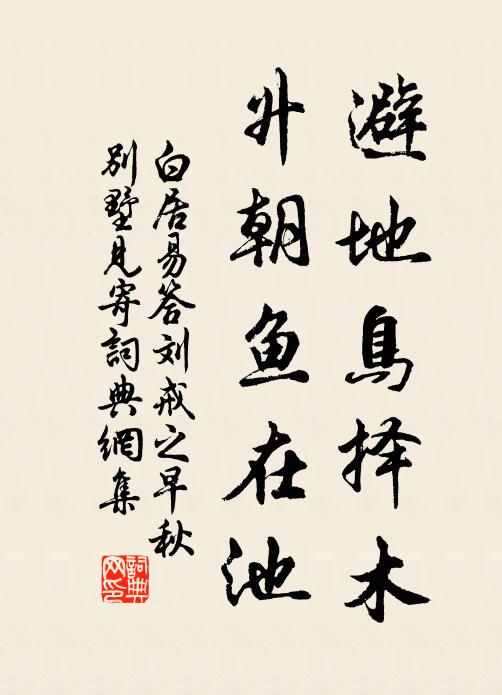 避地鳥择木
升朝鱼在池
白居易答刘戒之早秋
别墅见寄詞典網集
詞典网印